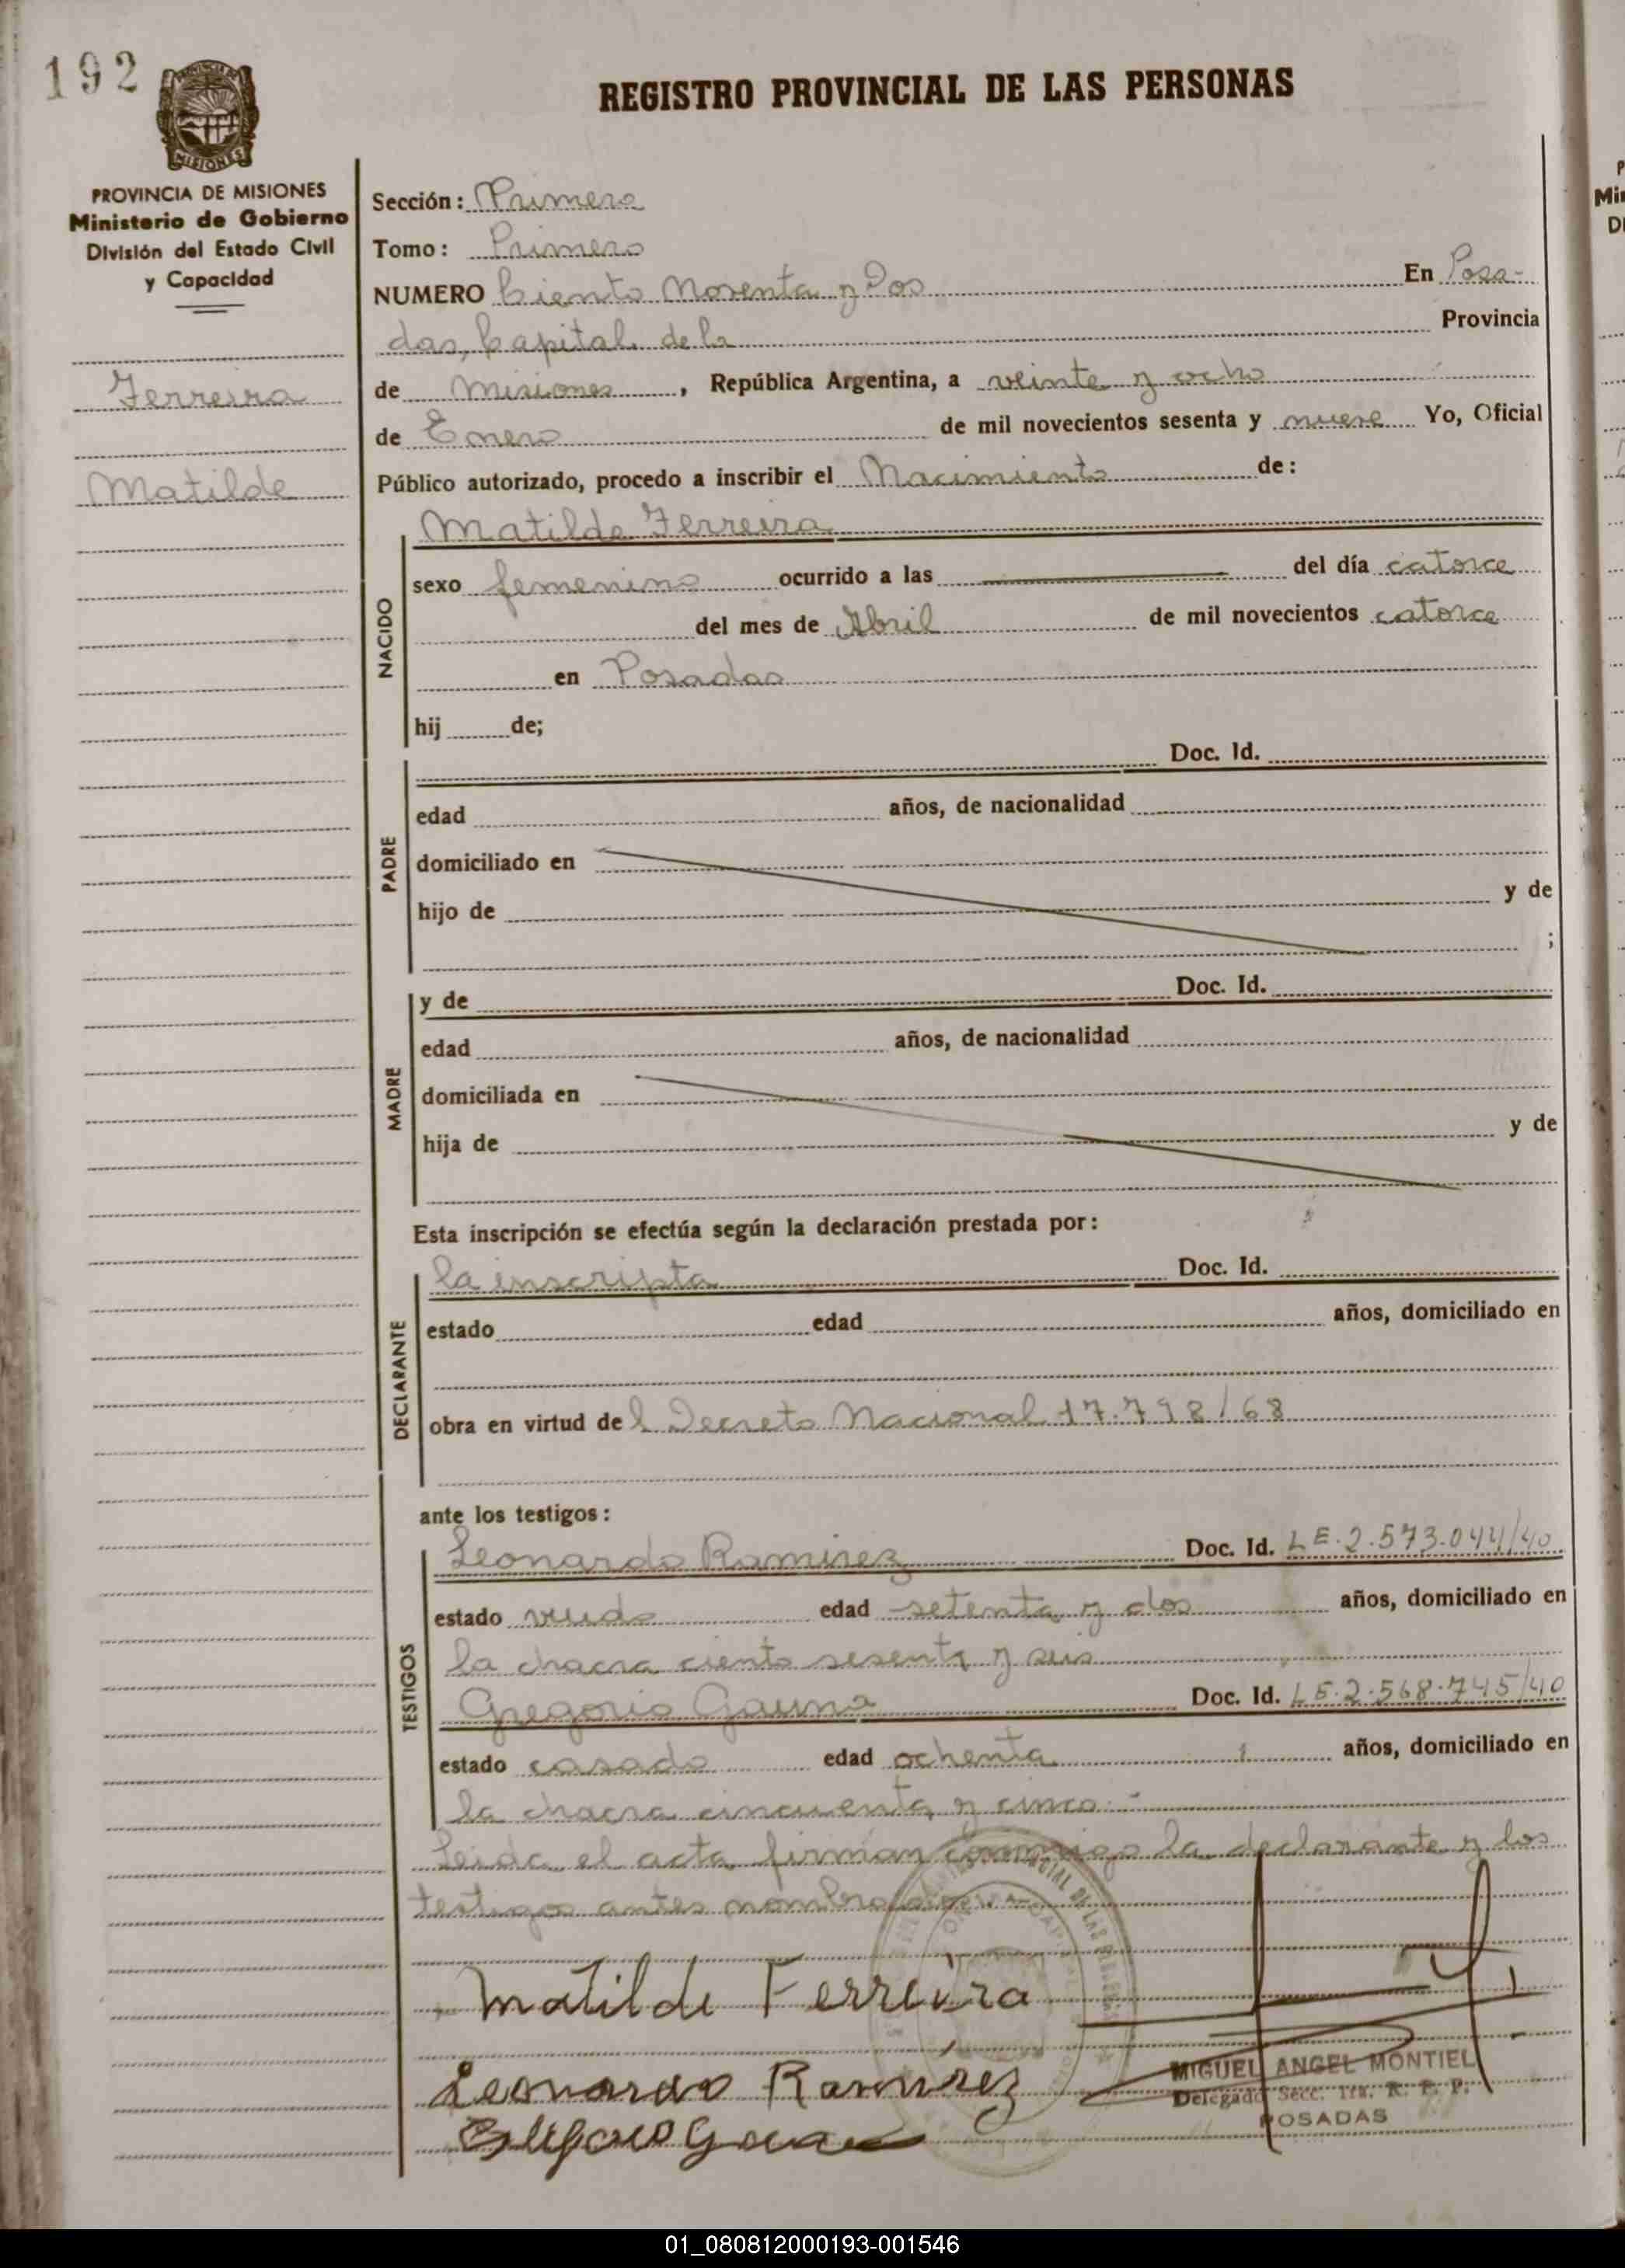 192
REGISTRO PROVINCIAL DE LAS PERSONAS
MISIONES
PROVINCIA DE MISIONES
Ministerio de Gobierno
División del Estado Civil
y Capacidad
Ferreira
Matilde
Sección: Primera
Tomo: Primero
NUMERO Ciento Noventa y Dos En Posa-
das, Capital de la Provincia
de Misiones, República Argentina, a veinte y ocho
de Enero de mil novecientos sesenta y nueve Yo, Oficial
Público autorizado, procedo a inscribir el Nacimiento de:
NACIDO
Matilde Ferreira
sexo femenino ocurrido a las del día catorce
del mes de Abril de mil novecientos catorce
en Posadas
hij de;
PADRE
Doc. Id.
edad años, de nacionalidad
domiciliado en
hijo de y de
;
MADRE
y de Doc. Id.
edad años, de nacionalidad
domiciliada en
hija de y de
Esta inscripción se efectúa según la declaración prestada por:
DECLARANTE
la inscripta Doc. Id.
estado edad años, domiciliado en
obra en virtud del Decreto Nacional 17.798/68
ante los testigos:
TESTIGOS
Leonardo Ramirez Doc. Id. LE.2.573.044/40
estado viudo edad setenta y dos años, domiciliado en
la chacra ciento sesenta y seis
Gregorio Gauna Doc. Id. LE.2.568.745/40
estado casado edad ochenta años, domiciliado en
la chacra cincuenta y cinco.-
Leida el acta firman conmigo la declarante y los
testigos antes nombrados.-
Matilde Ferreira
Leonardo Ramirez
MIGUEL ANGEL MONTIEL
Delegado Secc. 1ra. R. P. P.
POSADAS
Gregorio Gauna
01_080812000193-001546